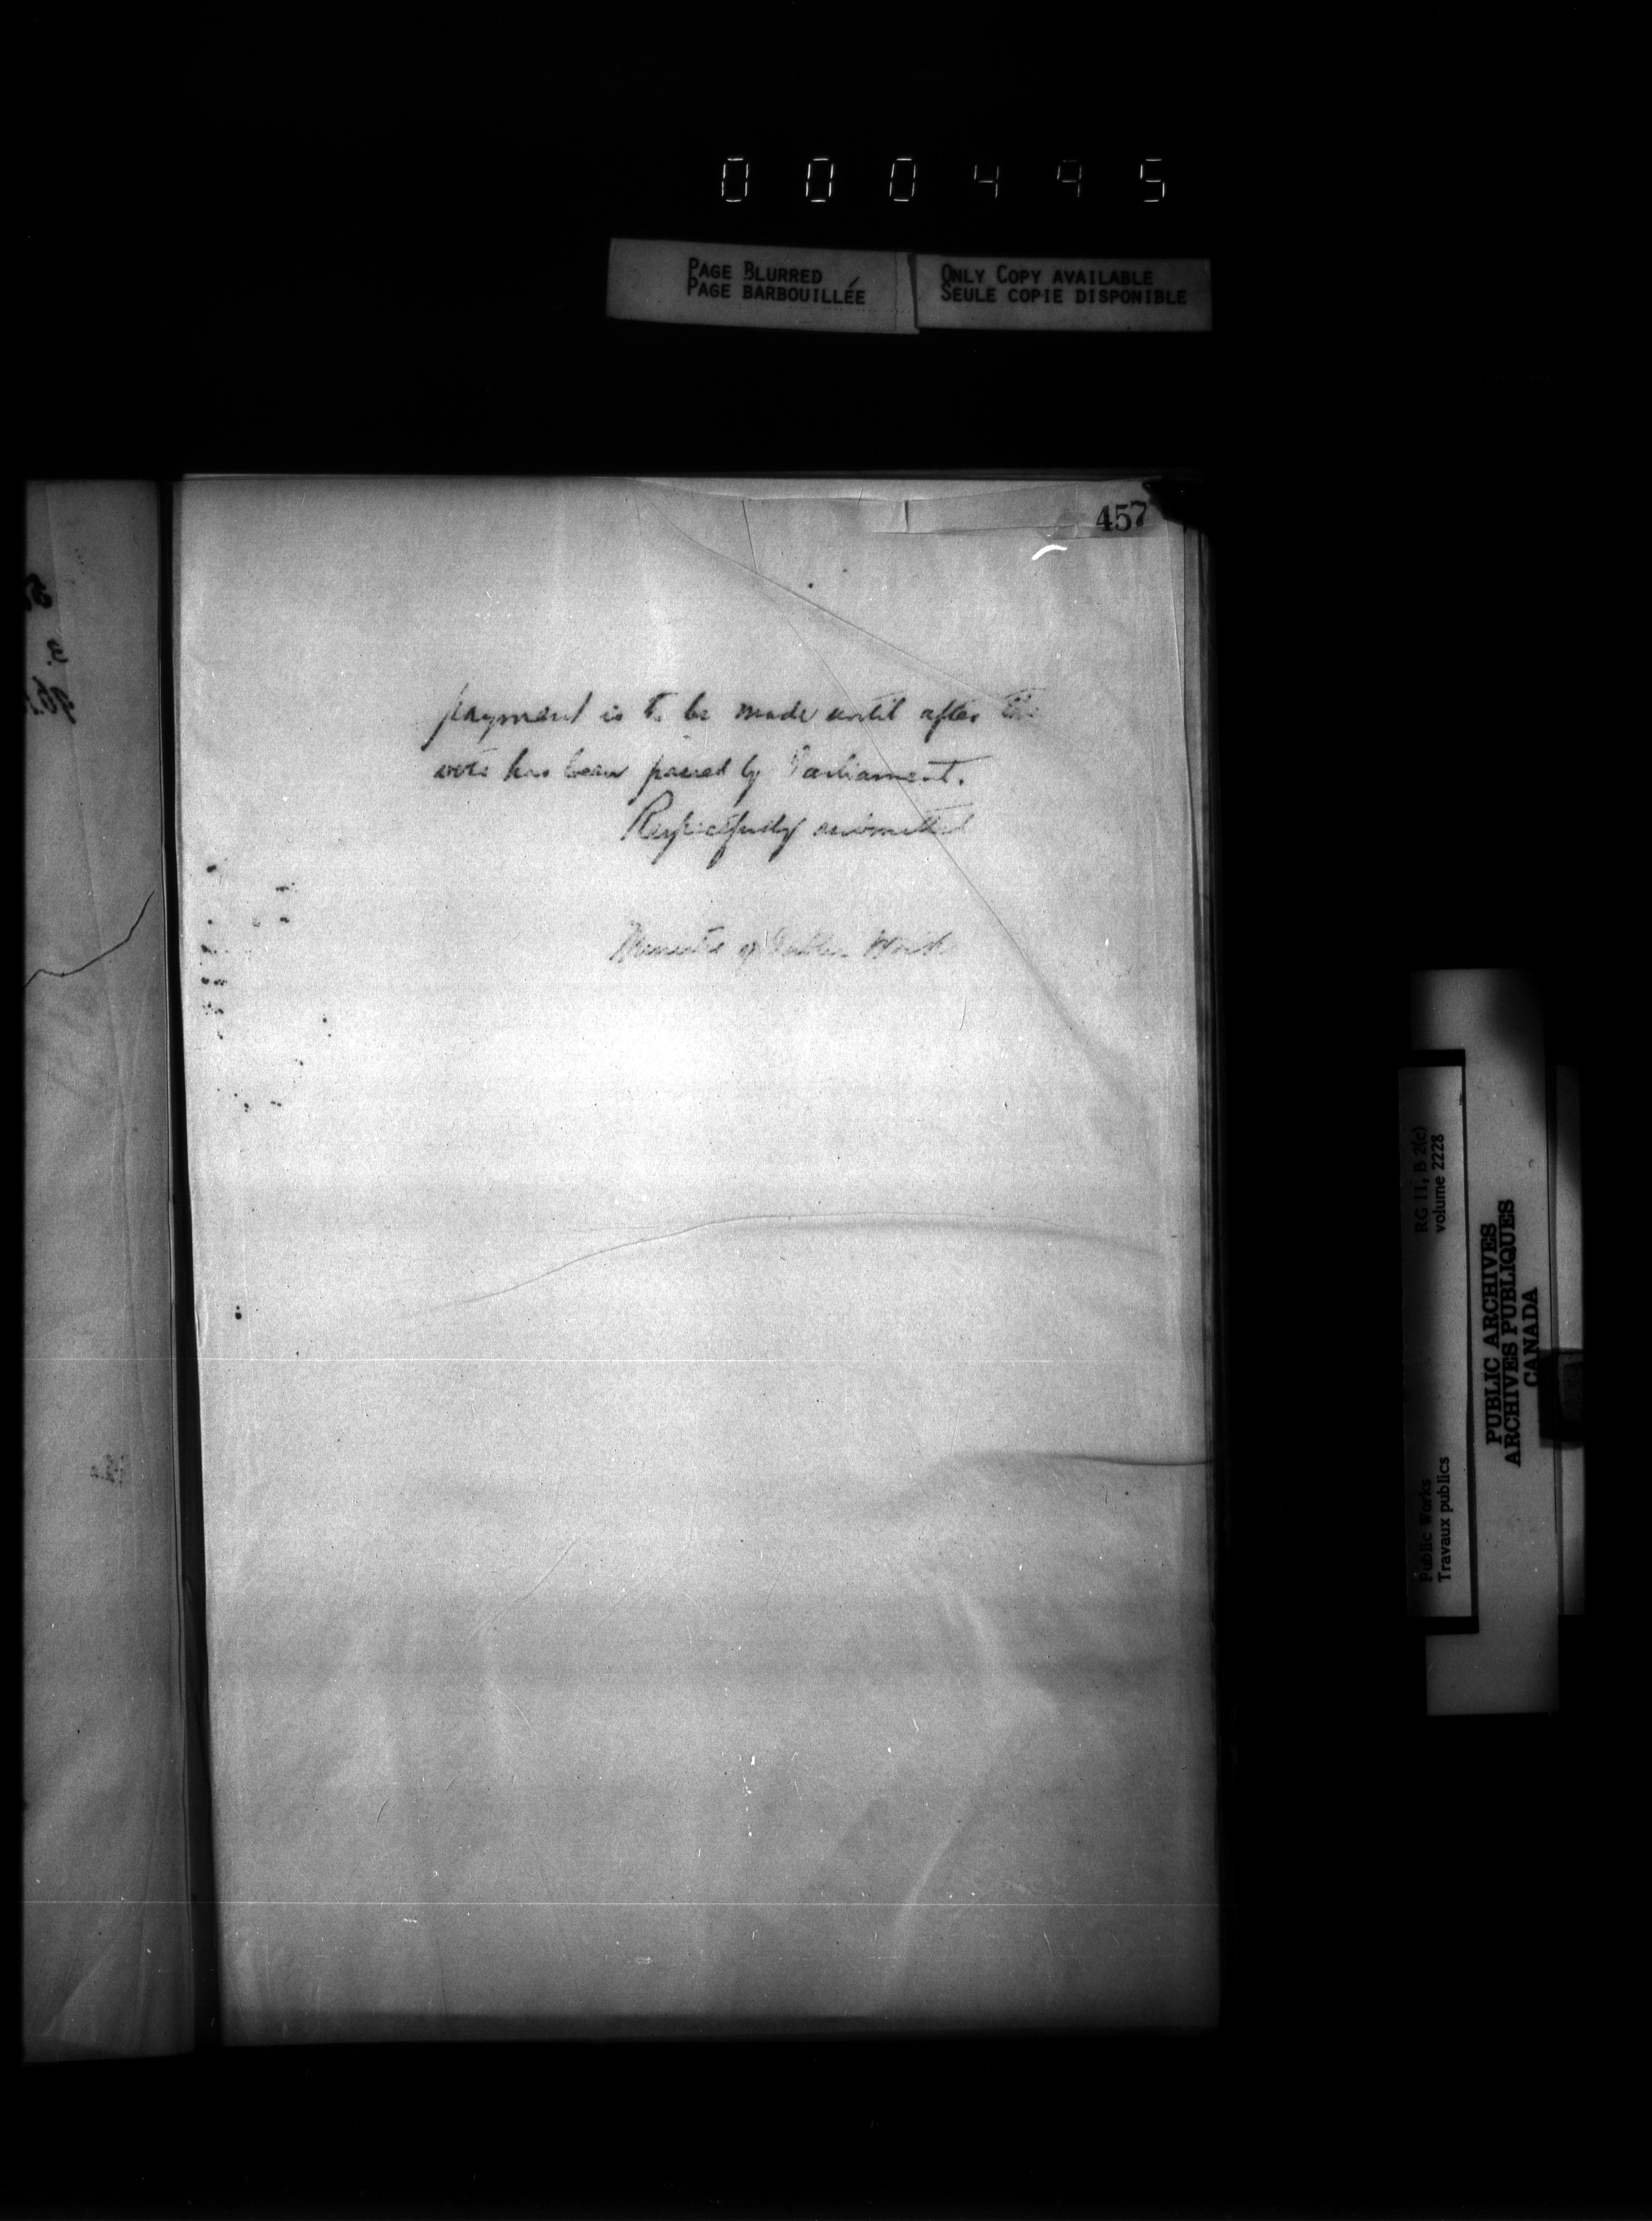 000495
PAGE BLURRED
PAGE BARBOUILLÉE
ONLY COPY AVAILABLE
SEULE COPIE DISPONIBLE
457
payment is to be made until after the
vote has been passed by Parliament.
Respectfully submitted
Minister of Public Works
RG 11, B 2(c)
volume 2228
Public Works
Travaux publics
PUBLIC ARCHIVES
ARCHIVES PUBLIQUES
CANADA